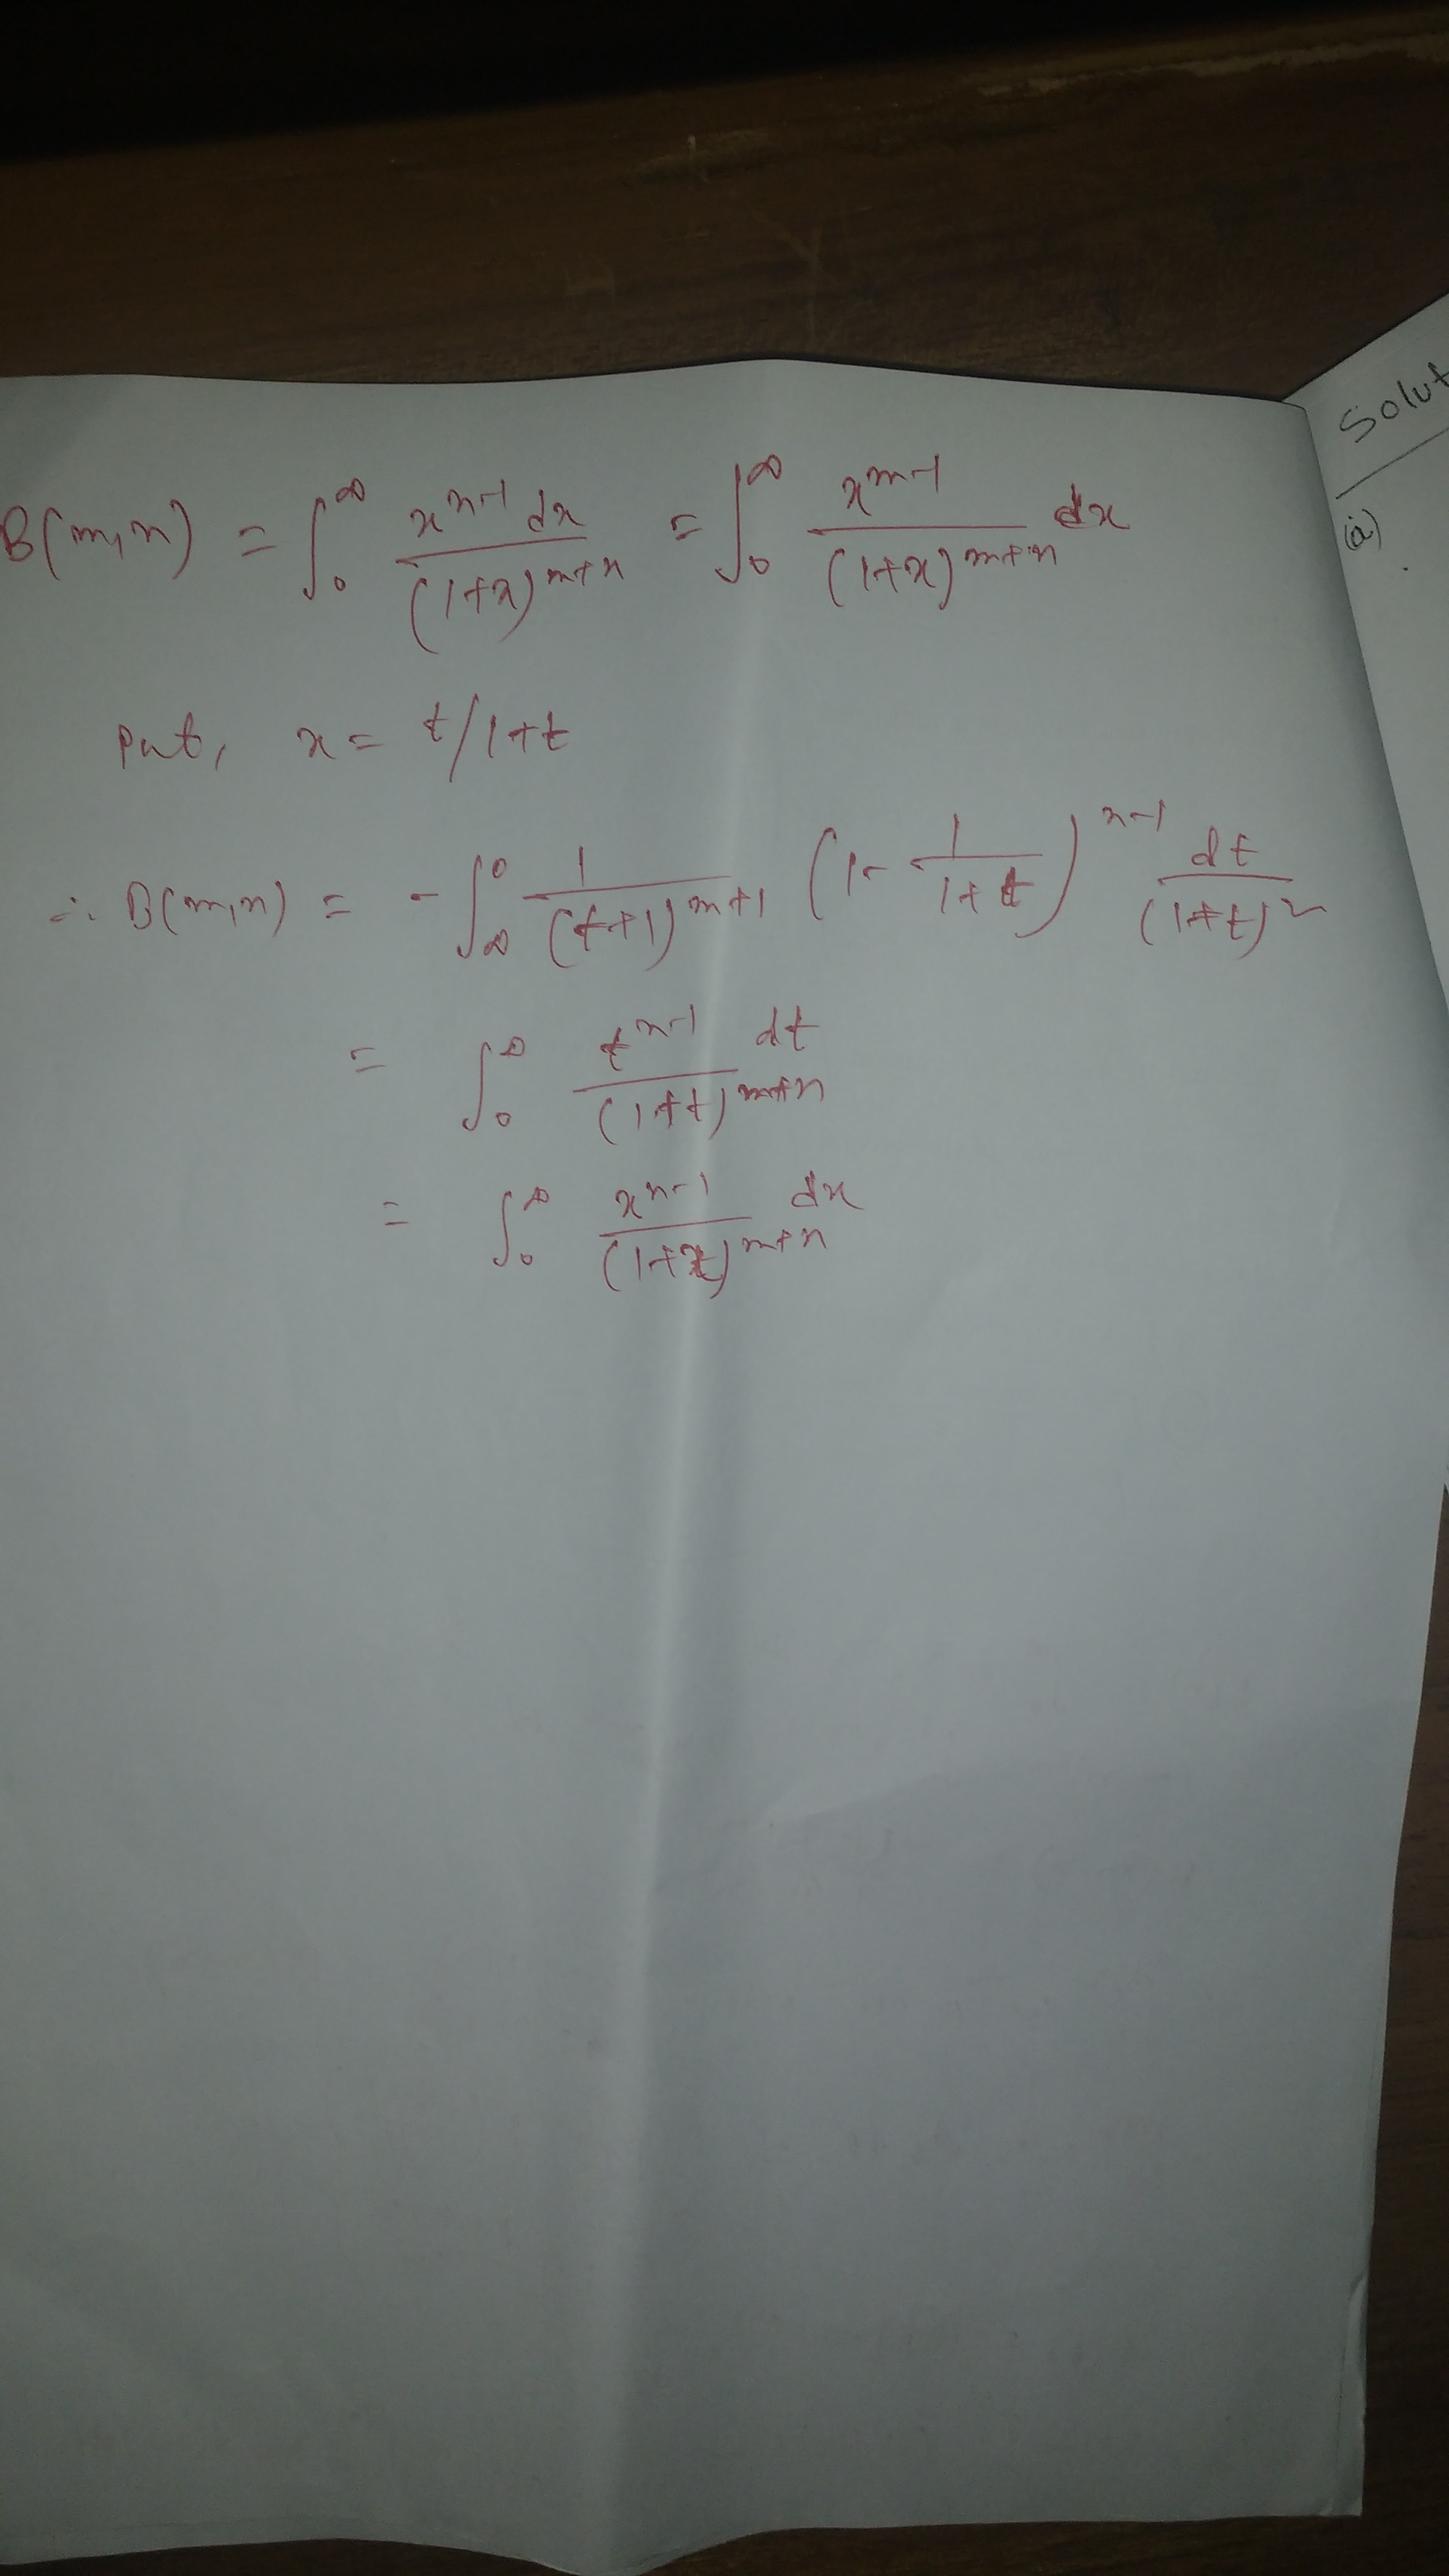 B(m,n) = ∫₀^∞ x^(n-1) dx / (1+x)^(m+n) = ∫₀^∞ x^(m-1) / (1+x)^(m+n) dx
Put, x = t/1+t
∴ B(m,n) = - ∫_∞^0 1/(t+1)^(m+1) (1 - 1/(1+t))^(n-1) dt/(1+t)^2
= ∫₀^∞ t^(n-1) dt / (1+t)^(m+n)
= ∫₀^∞ x^(n-1) dx / (1+x)^(m+n)
Solut
(a)